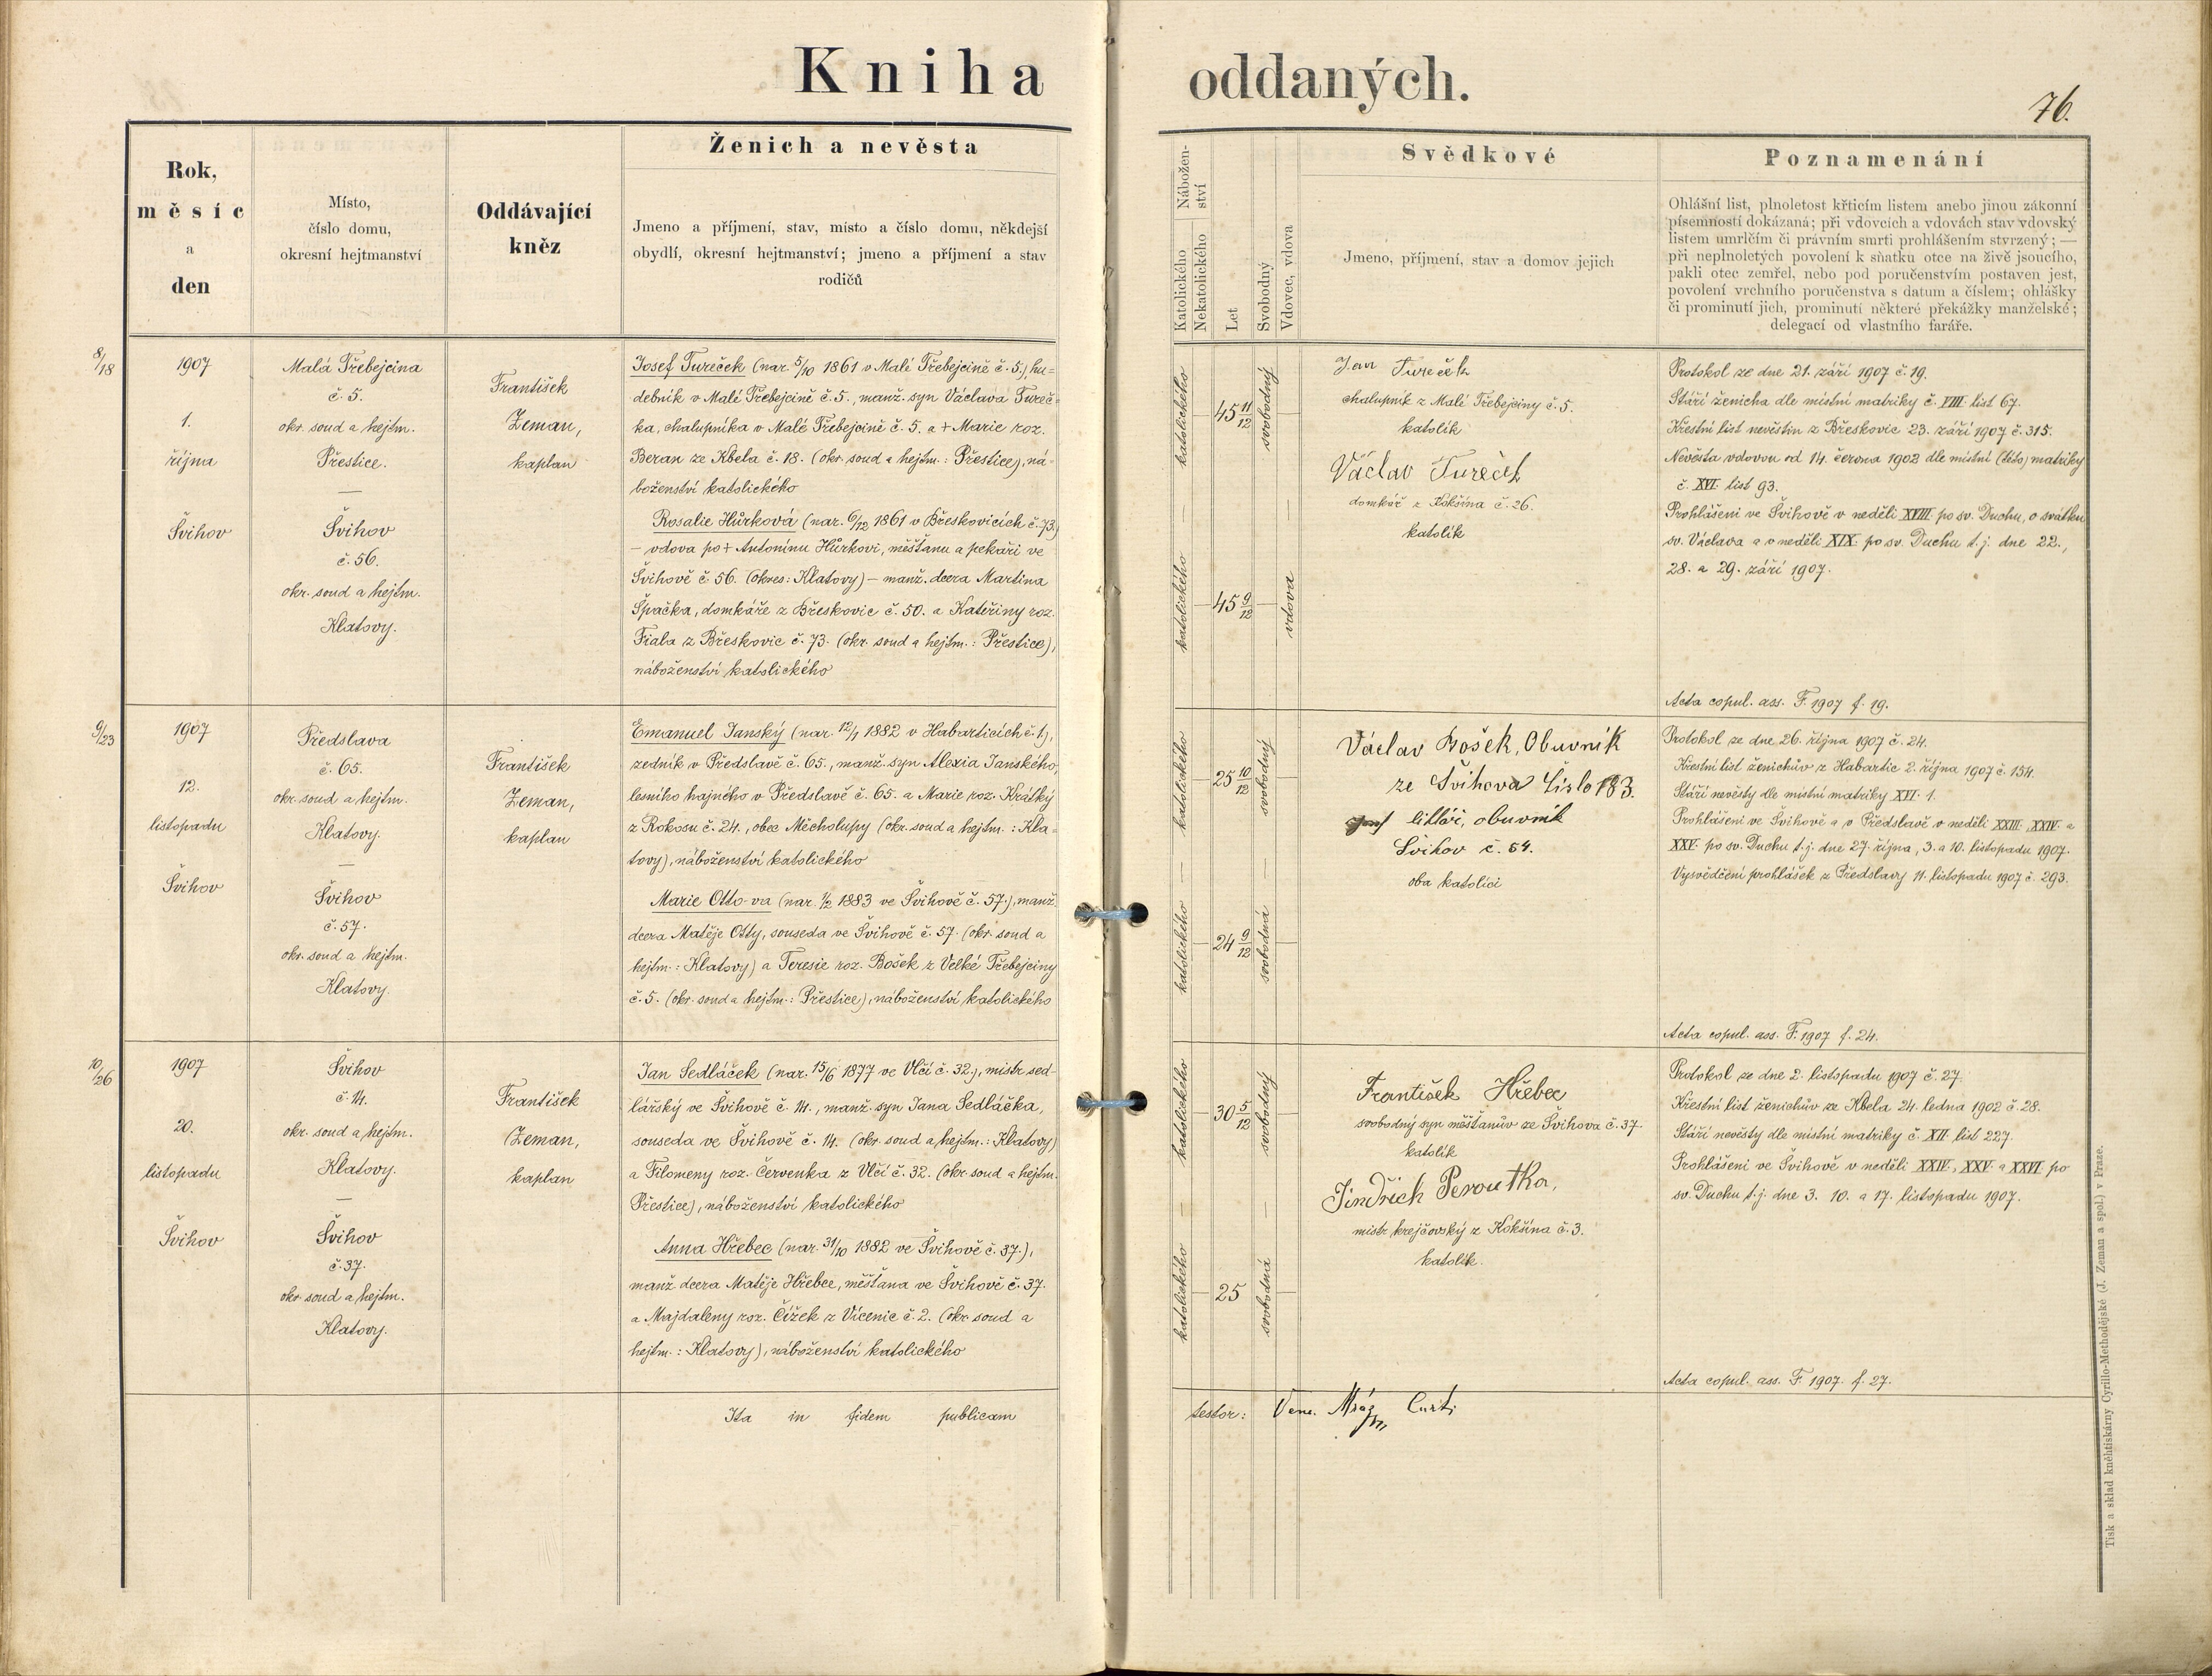 Kniha oddaných.
76.
Rok,
měsíc
a
den
Místo,
číslo domu,
okresní hejtmanství
Oddávající
kněz
Ženich a nevěsta
Jmeno a příjmení, stav, místo a číslo domu, někdejší
obydlí, okresní hejtmanství; jmeno a příjmení a stav
rodičů
Nábožen-
ství
Katolického
Nekatolického
Let
Svobodný
Vdovec, vdova
Svědkové
Jmeno, příjmení, stav a domov jejich
Poznamenání
Ohlášní list, plnoletost křticím listem anebo jinou zákonní
písemností dokázaná; při vdovcích a vdovách stav vdovský
listem umrlčím či právním smrti prohlášením stvrzený; —
při neplnoletých povolení k sňatku otce na živě jsoucího,
pakli otec zemřel, nebo pod poručenstvím postaven jest,
povolení vrchního poručenstva s datum a číslem; ohlášky
či prominutí jich, prominutí některé překážky manželské;
delegací od vlastního faráře.
8/18
1907
1.
října
Švihov
Malá Třebejcina
č. 5.
okr. soud a hejtm.
Přestice.
—
Švihov
č. 56.
okr. soud a hejtm.
Klatovy.
František
Zeman,
kaplan
Josef Tureček (nar. 5/10 1861 v Malé Třebejcině č. 5.), hu-
debník v Malé Třebejcině č. 5., manž. syn Václava Tureč-
ka, chalupníka v Malé Třebejcině č. 5. a + Marie roz.
Beran ze Kbela č. 18. (okr. soud a hejtm.: Přestice), ná-
boženství katolického
Rosalie Hůrková (nar. 6/12 1861 v Břeskovicích č. 73)
— vdova po + Antonínu Hůrkovi, měšťanu a pekaři ve
Švihově č. 56. (okres: Klatovy) — manž. dcera Martina
Špačka, domkáře z Břeskovic č. 50. a Kateřiny roz.
Fiala z Břeskovic č. 73. (okr. soud a hejtm.: Přestice),
náboženství katolického
katolického
45 11/12
svobodný
katolického
45 9/12
vdova
Jan Tureček
chalupník z Malé Třebejciny č. 5.
katolík
Václav Tureček
domkář z Kokšína č. 26.
katolík
Protokol ze dne 21. září 1907 č. 19.
Stáří ženicha dle místní matriky č. VIII. list 67.
Křestní list nevěstin z Břeskovic 23. září 1907 č. 315.
Nevěsta vdovou od 14. června 1902 dle místní (této) matriky
č. XVI. list 93.
Prohlášeni ve Švihově v neděli XVIII. po sv. Duchu, o svátku
sv. Václava a v neděli XIX. po sv. Duchu t. j. dne 22.,
28. a 29. září 1907.
Acta copul. ass. F. 1907 f. 19.
9/23
1907
12.
listopadu
Švihov
Předslava
č. 65.
okr. soud a hejtm.
Klatovy.
—
Švihov
č. 57.
okr. soud a hejtm.
Klatovy.
František
Zeman,
kaplan
Emanuel Janský (nar. 12/1 1882 v Habarticích č. 1.),
zedník v Předslavě č. 65., manž. syn Alexia Janského,
lesního hajného v Předslavě č. 65. a Marie roz. Krátký
z Rokosu č. 24., obec Měcholupy (okr. soud a hejtm.: Kla-
tovy), náboženství katolického
Marie Otto-va (nar. 1/2 1883 ve Švihově č. 57.), manž.
dcera Matěje Otty, souseda ve Švihově č. 57. (okr. soud a
hejtm.: Klatovy) a Teresie roz. Bošek z Velké Třebejciny
č. 5. (okr. soud a hejtm.: Přestice), náboženství katolického
katolického
25 10/12
svobodný
katolického
24 9/12
svobodná
Václav Bošek, Obuvník
ze Švihova Číslo 183.
obuvník
Švihov č. 54.
oba katolíci
Protokol ze dne 26. října 1907 č. 24.
Křestní list ženichův z Habartic 2. října 1907 č. 154.
Stáří nevěsty dle místní matriky XVI. 1.
Prohlášeni ve Švihově a v Předslavě v neděli XXIII., XXIV. a
XXV. po sv. Duchu t. j. dne 27. října, 3. a 10. listopadu 1907.
Vysvědčení prohlášek z Předslavy 11. listopadu 1907 č. 293.
Acta copul. ass. F. 1907 f. 24.
10/26
1907
20.
listopadu
Švihov
Švihov
č. 14.
okr. soud a hejtm.
Klatovy.
—
Švihov
č. 37.
okr. soud a hejtm.
Klatovy.
František
Zeman,
kaplan
Jan Sedláček (nar. 15/6 1877 ve Vlčí č. 32.), mistr sed-
lářský ve Švihově č. 14., manž. syn Jana Sedláčka,
souseda ve Švihově č. 14. (okr. soud a hejtm.: Klatovy)
a Filomeny roz. Červenka z Vlčí č. 32. (okr. soud a hejtm.
Přestice), náboženství katolického
Anna Hřebec (nar. 31/10 1882 ve Švihově č. 37.),
manž. dcera Matěje Hřebce, měšťana ve Švihově č. 37.
a Majdaleny roz. Čížek z Vícenic č. 2. (okr. soud a
hejtm.: Klatovy), náboženství katolického
katolického
30 5/12
svobodný
katolického
25
svobodná
František Hřebec
svobodný syn měšťanův ze Švihova č. 37.
katolík
Jindřich Peroutka,
mistr krejčovský z Kokšína č. 3.
katolík.
Protokol ze dne 2. listopadu 1907 č. 27.
Křestní list ženichův ze Kbela 24. ledna 1902 č. 28.
Stáří nevěsty dle místní matriky č. XII. list 227.
Prohlášeni ve Švihově v neděli XXIV., XXV. a XXVI. po
sv. Duchu t. j. dne 3. 10. a 17. listopadu 1907.
Acta copul. ass. F. 1907. f. 27.
Ita in fidem publicam
testor: Venc. Mráz
Tisk a sklad kněhtiskárny Cyrillo-Methodějské (J. Zeman a spol.) v Praze.